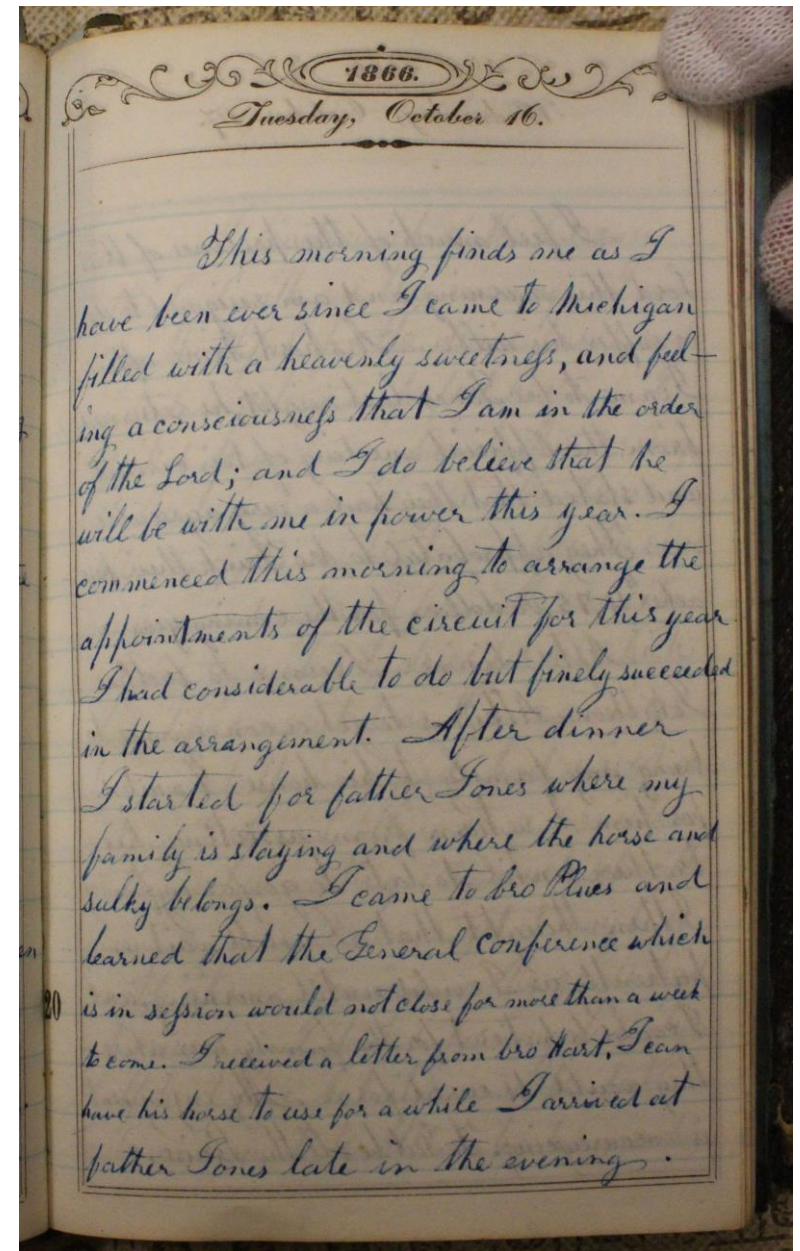 1866.
Tuesday, October 16.
This morning finds me as I
have been ever since I came to Michigan
filled with a heavenly sweetneſs, and feel-
ing a consciousneſs that I am in the order
of the Lord; and I do believe that he
will be with me in power this year. I
commenced this morning to arrange the
appointments of the circuit for this year
I had considerable to do but finely succeeded
in the arrangement. After dinner
I started for father Jones where my
family is staying and where the horse and
sulky belongs. I came to bro Plues and
learned that the General conference which
is in seſsion would not close for more than a week
to come. I received a letter from bro Hart. I can
have his horse to use for a while I arrived at
father Jones late in the evening.
20